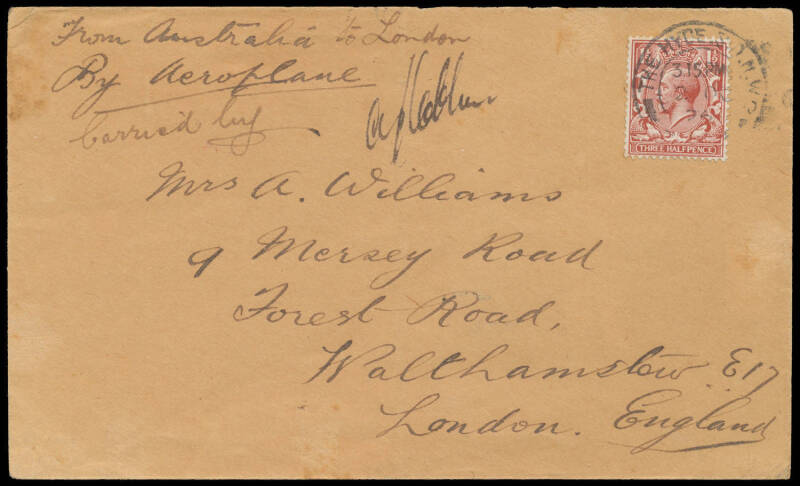 From Australia to London
By Aeroplane
Carried by
Mrs A. Williams
9 Mersey Road
Forest Road,
Walthamstow E17
London. England
THE HYDE N.W.
3.15 PM
THREE HALFPENCE